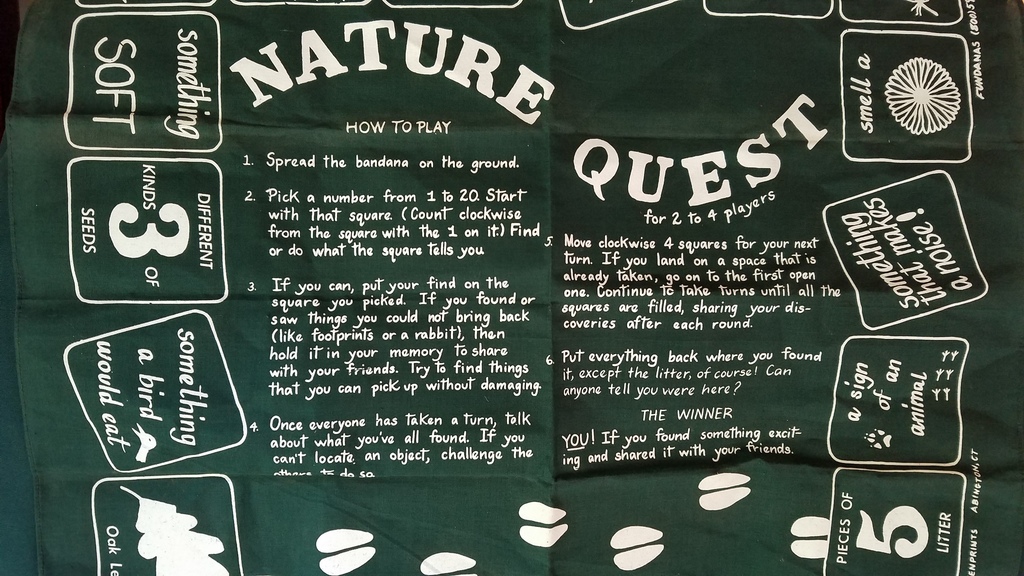 NATURE
QUEST
for 2 to 4 players
HOW TO PLAY
1. Spread the bandana on the ground.
2. Pick a number from 1 to 20. Start
with that square (Count clockwise
from the square with the 1 on it) Find
or do what the square tells you
3. If you can, put your find on the
square you picked. If you found or
saw things you could not bring back
(like footprints or a rabbit), then
hold it in your memory to share
with your friends. Try to find things
that you can pick up without damaging.
4. Once everyone has taken a turn, talk
about what you've all found. If you
can't locate an object, challenge the
others to do so
5. Move clockwise 4 squares for your next
turn. If you land on a space that is
already taken, go on to the first open
one. Continue to take turns until all the
squares are filled, sharing your dis-
coveries after each round.
6. Put everything back where you found
it, except the litter, of course! Can
anyone tell you were here?
THE WINNER
YOU! If you found something excit-
ing and shared it with your friends.
something
SOFT
DIFFERENT
3 KINDS OF
SEEDS
something
a bird
would eat
Oak
smell a
something
that makes
a noise!
a sign
of an
animal
PIECES OF
5
LITTER
FUNDANAS (800)
ENPRINTS ABINGTON, CT